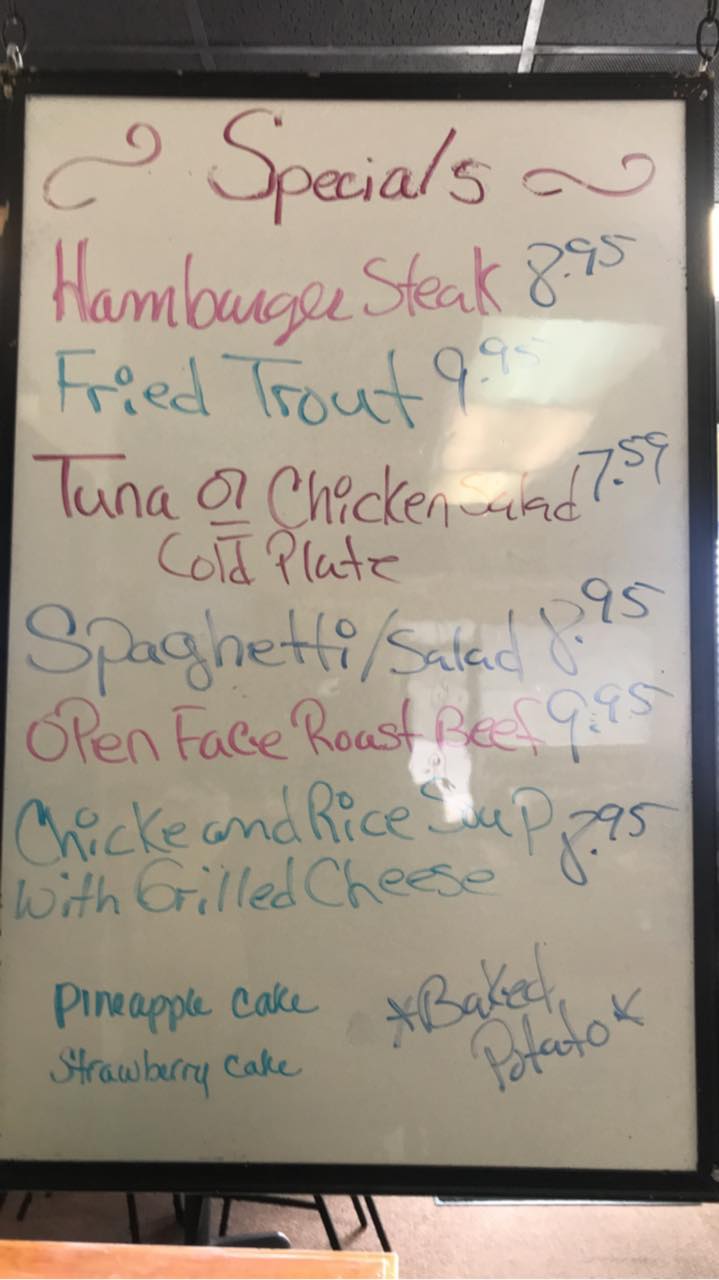 Specials
Hamburger Steak 8.95
Fried Trout 9.95
Tuna or Chicken Salad 7.59
Cold Plate
Spaghetti/Salad 8.95
Open Face Roast Beef 9.95
Chicke and Rice Soup 8.95
with Grilled Cheese
Pineapple cake
Strawberry cake
*Baked
Potato*